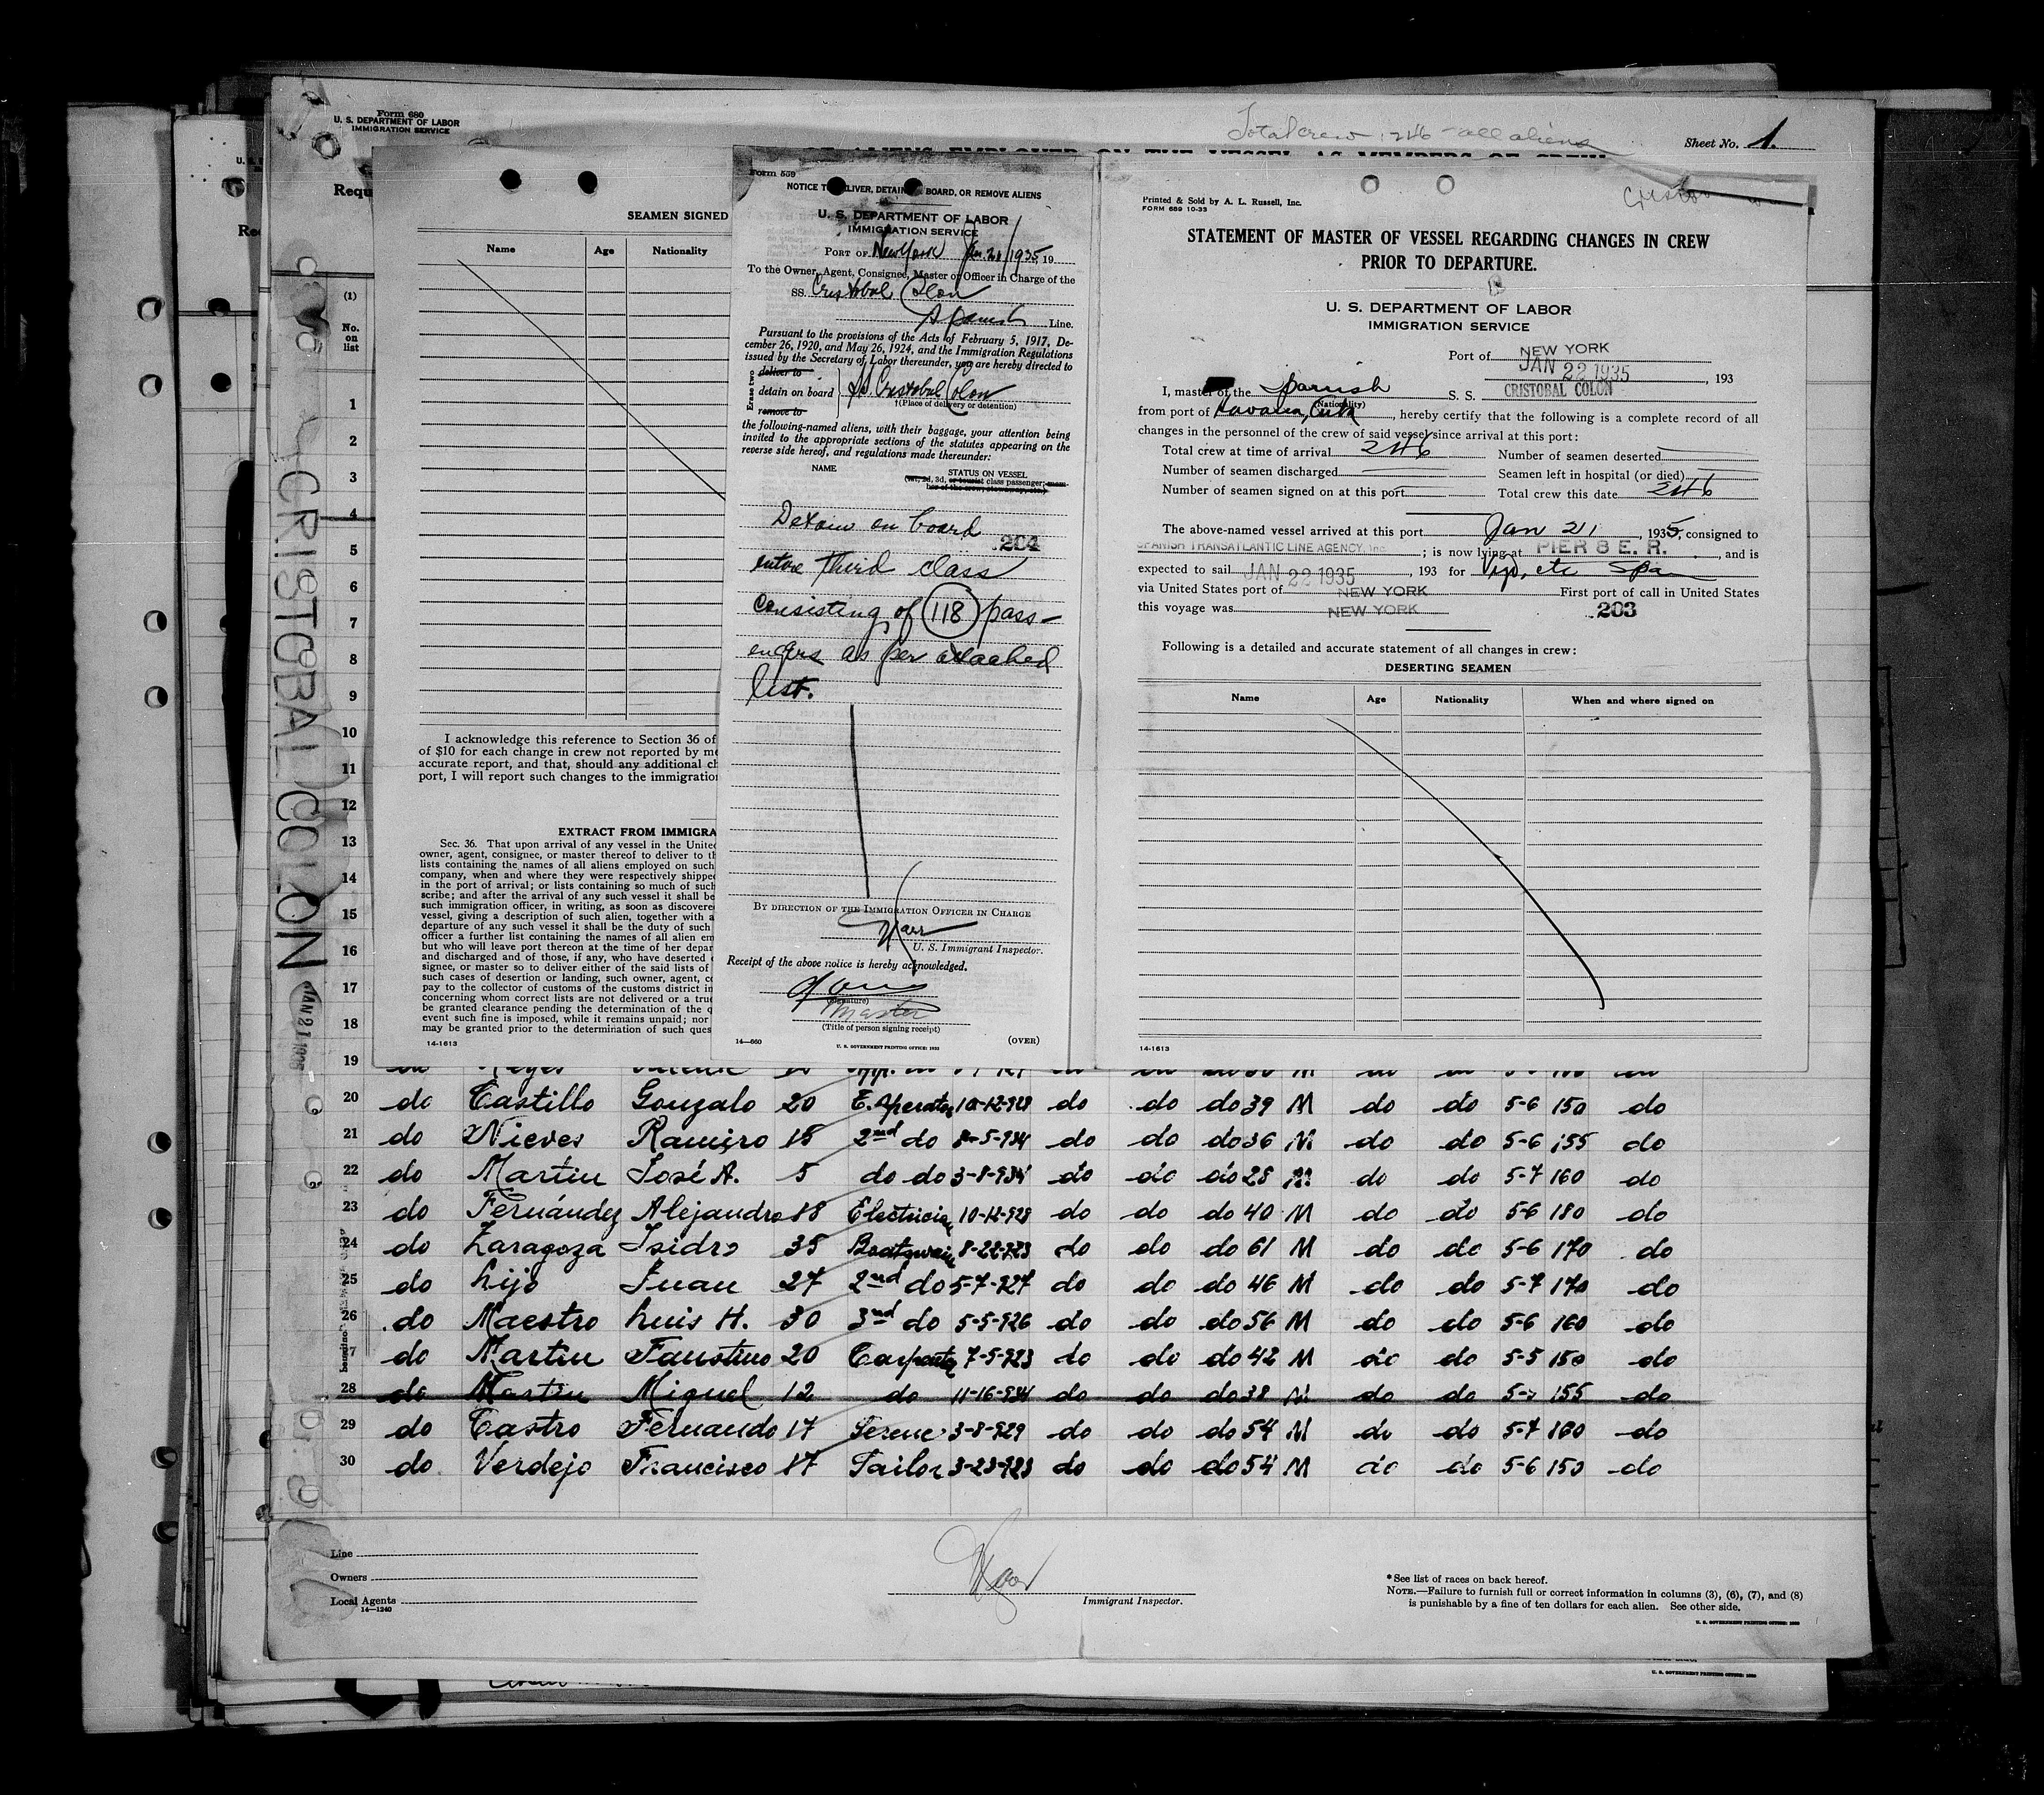 Form 680
U. S. DEPARTMENT OF LABOR
IMMIGRATION SERVICE
Total crew 246 - all aliens
Sheet No. 1.
Requ
(1)
No.
on
list
1
2
3
4
5
6
7
8
9
10
11
12
13
14
15
16
17
18
19
CRISTOBAL COLON
JAN 21 1935
SEAMEN SIGNED
Name Age Nationality
I acknowledge this reference to Section 36 of
of $10 for each change in crew not reported by me
accurate report, and that, should any additional ch
port, I will report such changes to the immigration
EXTRACT FROM IMMIGRA
Sec. 36. That upon arrival of any vessel in the United
owner, agent, consignee, or master thereof to deliver to th
lists containing the names of all aliens employed on such
company, when and where they were respectively shipped
in the port of arrival; or lists containing so much of such
scribe; and after the arrival of any such vessel it shall be
such immigration officer, in writing, as soon as discovered
vessel, giving a description of such alien, together with a
departure of any such vessel it shall be the duty of such
officer a further list containing the names of all alien em
but who will leave port thereon at the time of her depar
and discharged and of those, if any, who have deserted o
signee, or master so to deliver either of the said lists of
such cases of desertion or landing, such owner, agent, co
pay to the collector of customs of the customs district in
concerning whom correct lists are not delivered or a true
be granted clearance pending the determination of the q
event such fine is imposed, while it remains unpaid; nor
may be granted prior to the determination of such ques
14-1613
Form 559
NOTICE TO DELIVER, DETAIN ON BOARD, OR REMOVE ALIENS
U. S. DEPARTMENT OF LABOR
IMMIGRATION SERVICE
PORT OF New York Jan. 21/1935, 19
To the Owner, Agent, Consignee, Master or Officer in Charge of the
SS. Cristobal Colon
Spanish Line.
Pursuant to the provisions of the Acts of February 5, 1917, De-
cember 26, 1920, and May 26, 1924, and the Immigration Regulations
issued by the Secretary of Labor thereunder, you are hereby directed to
Erase two
deliver to
detain on board } SS. Cristobal Colon
remove to
†(Place of delivery or detention)
the following-named aliens, with their baggage, your attention being
invited to the appropriate sections of the statutes appearing on the
reverse side hereof, and regulations made thereunder:
NAME STATUS ON VESSEL
(1st, 2d, 3d, or tourist class passenger; mem-
ber of the crew, stowaway, etc.)
Detain on board
204
entire third class
consisting of (118) pass-
engers as per attached
list.
BY DIRECTION OF THE IMMIGRATION OFFICER IN CHARGE
U. S. Immigrant Inspector.
Receipt of the above notice is hereby acknowledged.
(Signature)
Master
(Title of person signing receipt)
14—660 U. S. GOVERNMENT PRINTING OFFICE: 1933 (OVER)
Printed & Sold by A. L. Russell, Inc.
FORM 689 10-33
STATEMENT OF MASTER OF VESSEL REGARDING CHANGES IN CREW
PRIOR TO DEPARTURE.
U. S. DEPARTMENT OF LABOR
IMMIGRATION SERVICE
Port of NEW YORK
JAN 22 1935, 193
I, master of the Spanish S. S. CRISTOBAL COLON
(Nationality)
from port of Havana, Cuba, hereby certify that the following is a complete record of all
changes in the personnel of the crew of said vessel since arrival at this port:
Total crew at time of arrival 246 Number of seamen deserted
Number of seamen discharged Seamen left in hospital (or died)
Number of seamen signed on at this port Total crew this date 246
The above-named vessel arrived at this port Jan 21, 1935, consigned to
SPANISH TRANSATLANTIC LINE AGENCY, Inc.; is now lying at PIER 8 E. R., and is
expected to sail JAN 22 1935, 193 for Vigo, etc Spain
via United States port of NEW YORK First port of call in United States
this voyage was NEW YORK 203
Following is a detailed and accurate statement of all changes in crew:
DESERTING SEAMEN
Name Age Nationality When and where signed on
14-1613
20 do Castillo Gonzalo 20 E. Operator 10-12-928 do do do 39 M do do 5-6 150 do
21 do Nieves Ramiro 15 2nd do 8-5-934 do do do 36 M do do 5-6 155 do
22 do Martin José A. 5 do do 3-8-934 do do do 28 M do do 5-7 160 do
23 do Fernández Alejandro 18 Electrician 10-12-928 do do do 40 M do do 5-6 180 do
24 do Zaragoza Isidro 35 Boatswain 8-22-923 do do do 61 M do do 5-6 170 do
25 do Lijo Juan 27 2nd do 5-7-927 do do do 46 M do do 5-7 170 do
26 do Maestro Luis H. 30 3nd do 5-5-926 do do do 56 M do do 5-6 160 do
27 do Martin Faustino 20 Carpenter 7-5-923 do do do 42 M do do 5-5 150 do
28 do Martin Miguel 12 do 11-16-934 do do do 38 M do do 155 do
29 do Castro Fernando 17 3-8-929 do do do 54 M do do 5-7 160 do
30 do Verdejo Francisco 17 Tailor 3-23-923 do do do 54 M do do 5-6 150 do
Line
Owners
Local Agents
14—1240
Immigrant Inspector.
*See list of races on back hereof.
NOTE.—Failure to furnish full or correct information in columns (3), (6), (7), and (8)
is punishable by a fine of ten dollars for each alien. See other side.
U. S. GOVERNMENT PRINTING OFFICE: 1930